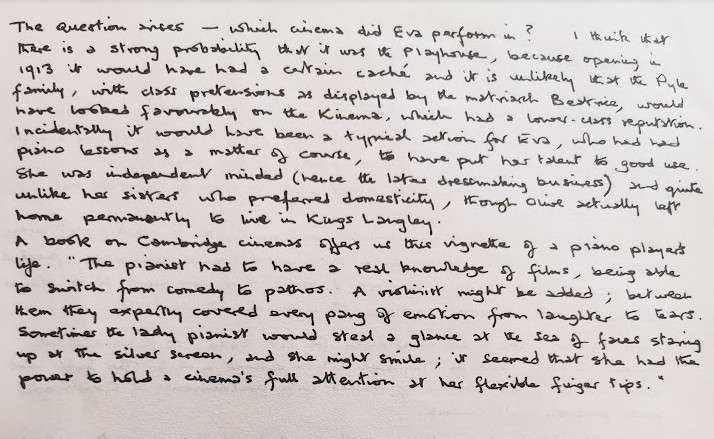 The question arises — which cinema did Eva perform in? I think that
there is a strong probability that it was the Playhouse, because opening in
1913 it would have had a certain caché and it is unlikely that the Pyle
family, with class pretensions as displayed by the matriarch Beatrice, would
have looked favourably on the Kinema, which had a lower-class reputation.
Incidentally it would have been a typical action for Eva, who had had
piano lessons as a matter of course, to have put her talent to good use.
She was independent minded (hence the later dressmaking business) and quite
unlike her sisters who preferred domesticity, though Olive actually left
home permanently to live in Kings Langley.
A book on Cambridge cinemas offers us this vignette of a piano player's
life. "The pianist had to have a real knowledge of films, being able
to switch from comedy to pathos. A violinist might be added; between
them they expertly covered every pang of emotion from laughter to tears.
Sometimes the lady pianist would steal a glance at the sea of faces staring
up at the silver screen, and she might smile; it seemed that she had the
power to hold a cinema's full attention at her flexible finger tips."